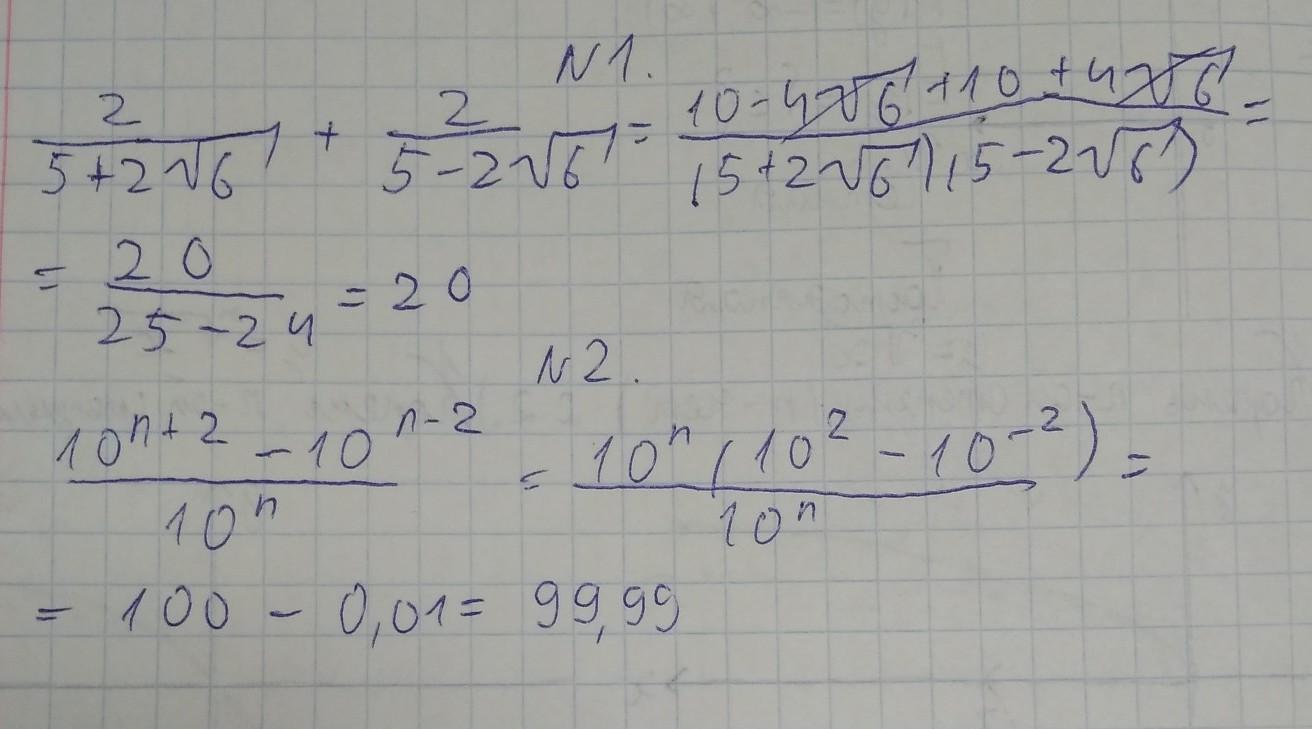 N1.
2/(5+2√6) + 2/(5-2√6) = (10-4√6+10+4√6)/((5+2√6)(5-2√6)) =
= 20/(25-24) = 20
N2.
(10^(n+2) - 10^(n-2))/10^n = 10^n(10^2 - 10^(-2))/10^n =
= 100 - 0,01 = 99,99